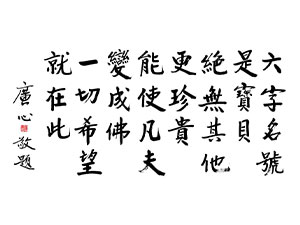 六字名號
是寶貝
絕無其他
更珍貴
能使凡夫
變成佛
一切希望
就在此
廣心敬題